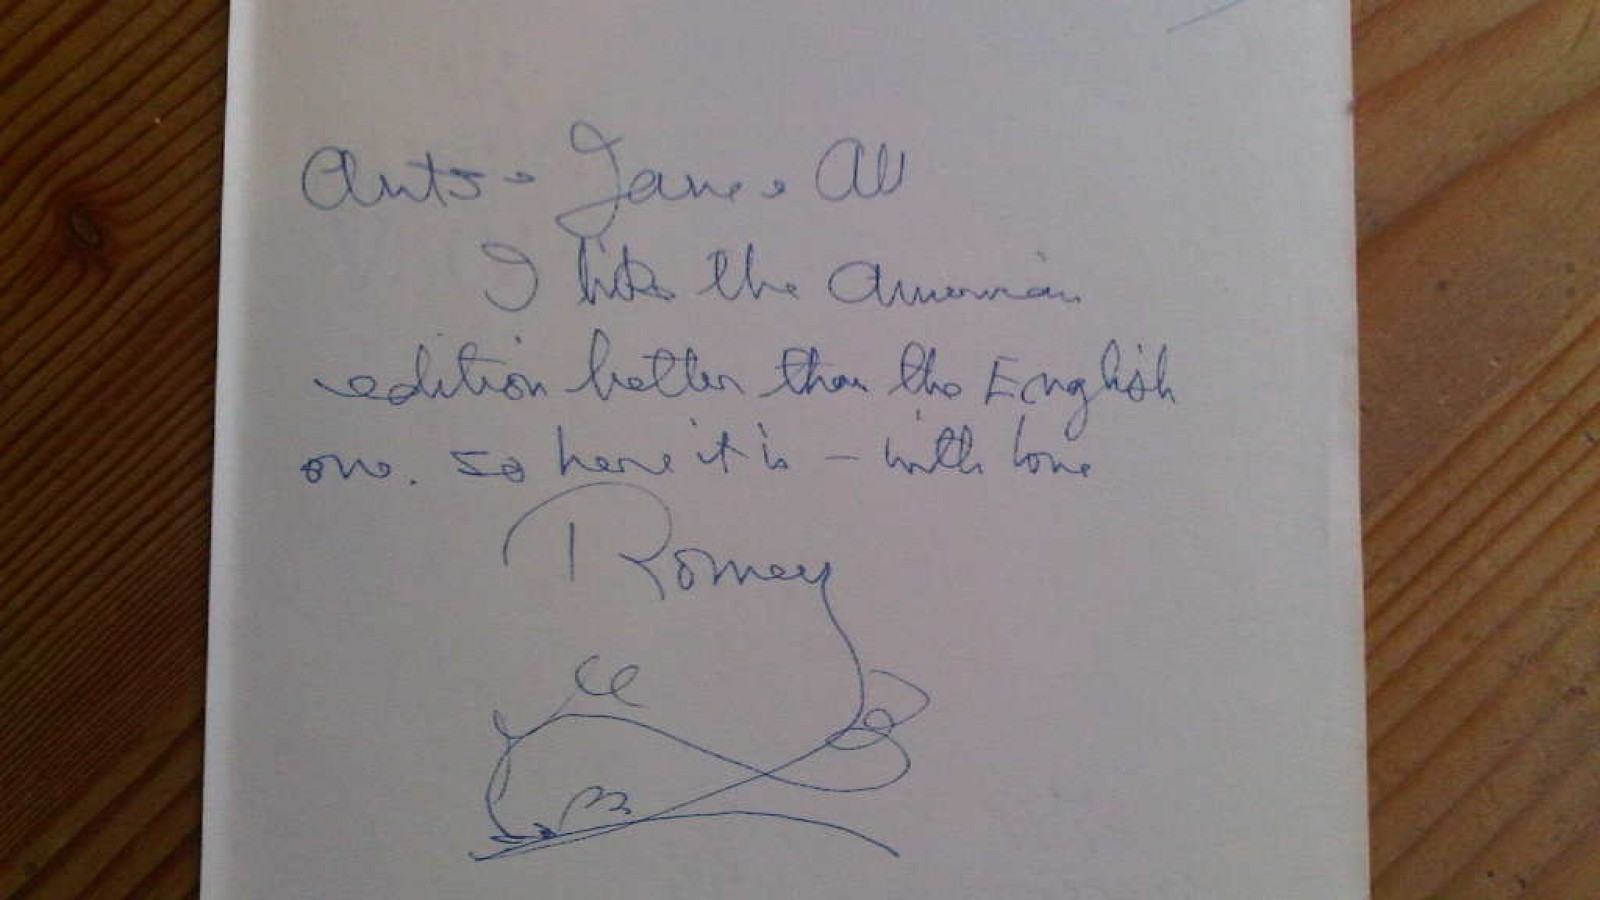 Jane & All
I like the American
edition better than the English
one. So here it is – with love
Romey